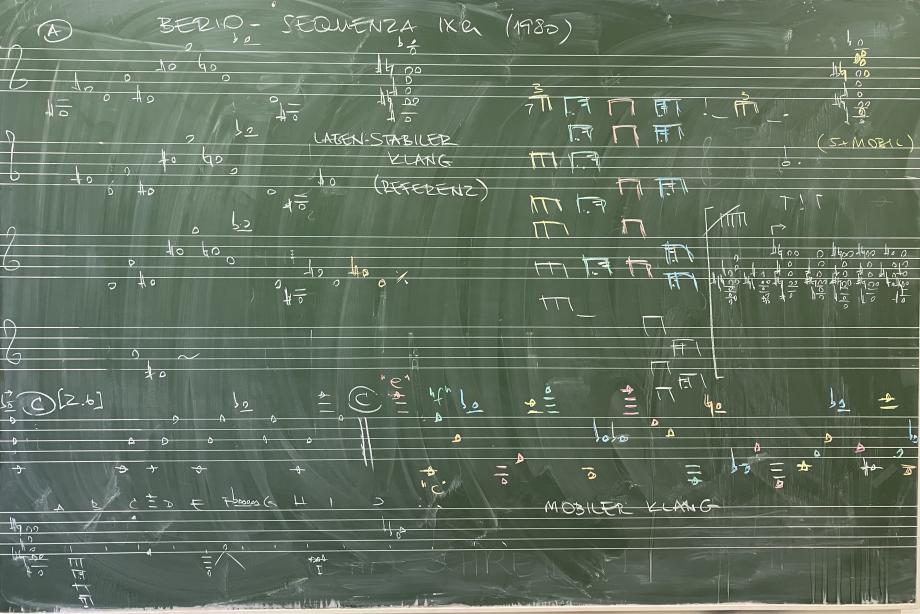 A BERIO - SEQUENZA IXa (1980)
3 3
LAGEN-STABILER
KLANG
(REFERENZ)
(5 + MOBIL)
C [2.6]
C
"e"
"f"
"c"
MOBILER KLANG